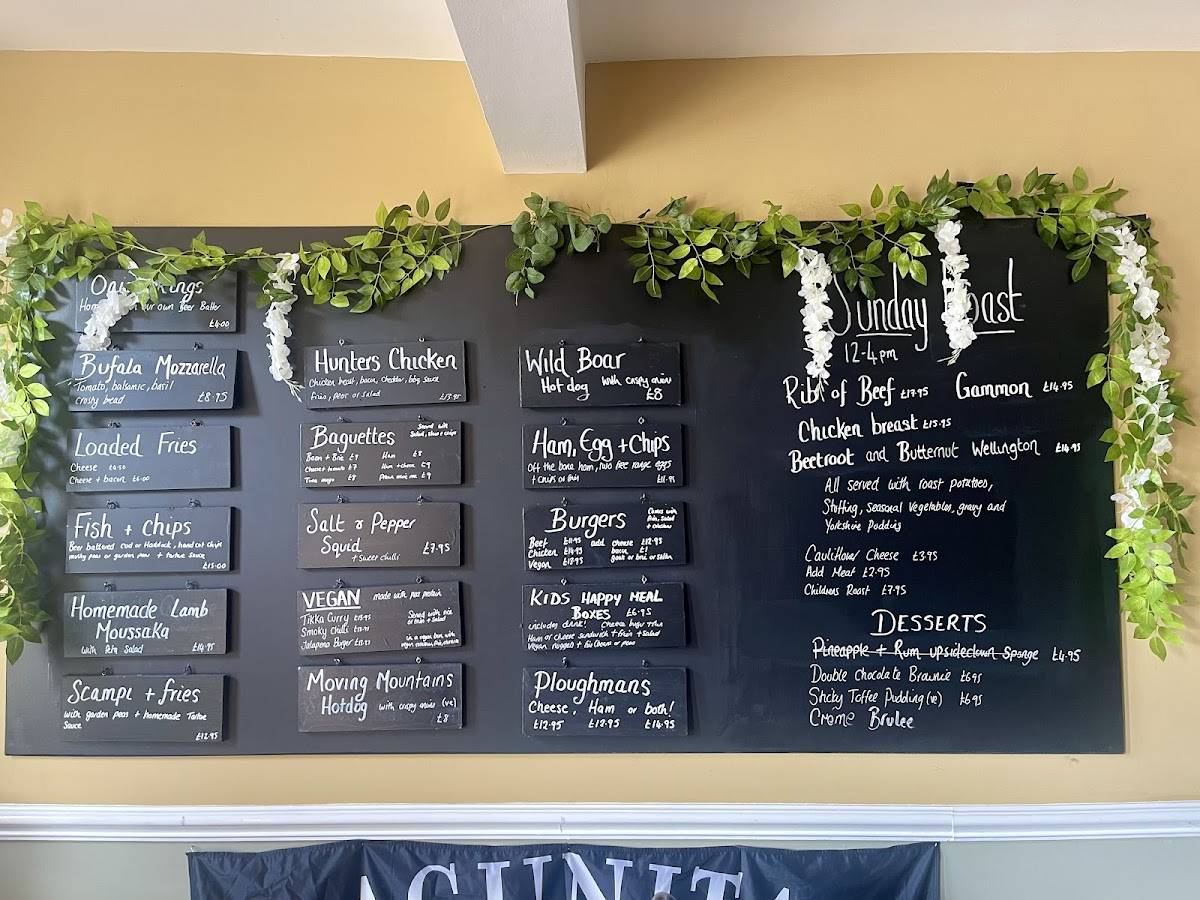 Rings
our own Beer Batter
£4.00
Bufala Mozzarella
Tomato, balsamic, basil
Crusty bread £8.95
Loaded Fries
Cheese £4.50
Cheese + bacon £6.00
Fish + Chips
Beer battered cod or Haddock, hand cut chips
mushy peas or garden peas + tartare sauce
£15.00
Homemade Lamb
Moussaka
with Feta Salad £14.95
Scampi + fries
with garden peas + homemade Tartar
Sauce
£12.95
Hunters Chicken
Chicken breast, bacon, Cheddar, bbq Sauce
fries, peas or Salad £13.95
Baguettes
Served with
Salad, slaw + chips
Bacon + Brie £9 Ham £8
Cheese + tomato £7 Ham + cheese £9
Tuna mayo £8 £9
Salt & Pepper
Squid £7.95
+ Sweet chilli
VEGAN made with pea protein
Tikka Curry
Smoky Chilli
Jalapeno Burger
Served with rice
or fries + Salad
Moving Mountains
Hotdog with crispy onions (ve)
£8
Wild Boar
Hot dog with crispy onions
£8
Ham, Egg + Chips
Off the bone ham, two free range eggs
+ chips or fries £11.95
Burgers
Comes with
fries, salad
+ coleslaw
Beef add cheese
Chicken bacon £1
Vegan goat or brie or stilton
Kids Happy Meal
Boxes £6.95
includes drink! Cheese burger + fries
Ham or cheese sandwich + fries + salad
Vegan nuggets + fries + beans or peas
Ploughmans
Cheese, Ham or both!
£12.95 £12.95 £14.95
Sunday Roast
12-4pm
Rib of Beef £17.95 Gammon £14.95
Chicken breast £15.95
Beetroot and Butternut Wellington £14.95
All served with roast potatoes,
Stuffing, seasonal vegetables, gravy and
Yorkshire Pudding
Cauliflower Cheese £3.95
Add Meat £2.95
Childrens Roast £7.95
Desserts
Pineapple + Rum upsidedown Sponge £4.95
Double Chocolate Brownie £6.95
Sticky Toffee Pudding (ve) £6.95
Creme Brulee
AGUNITA